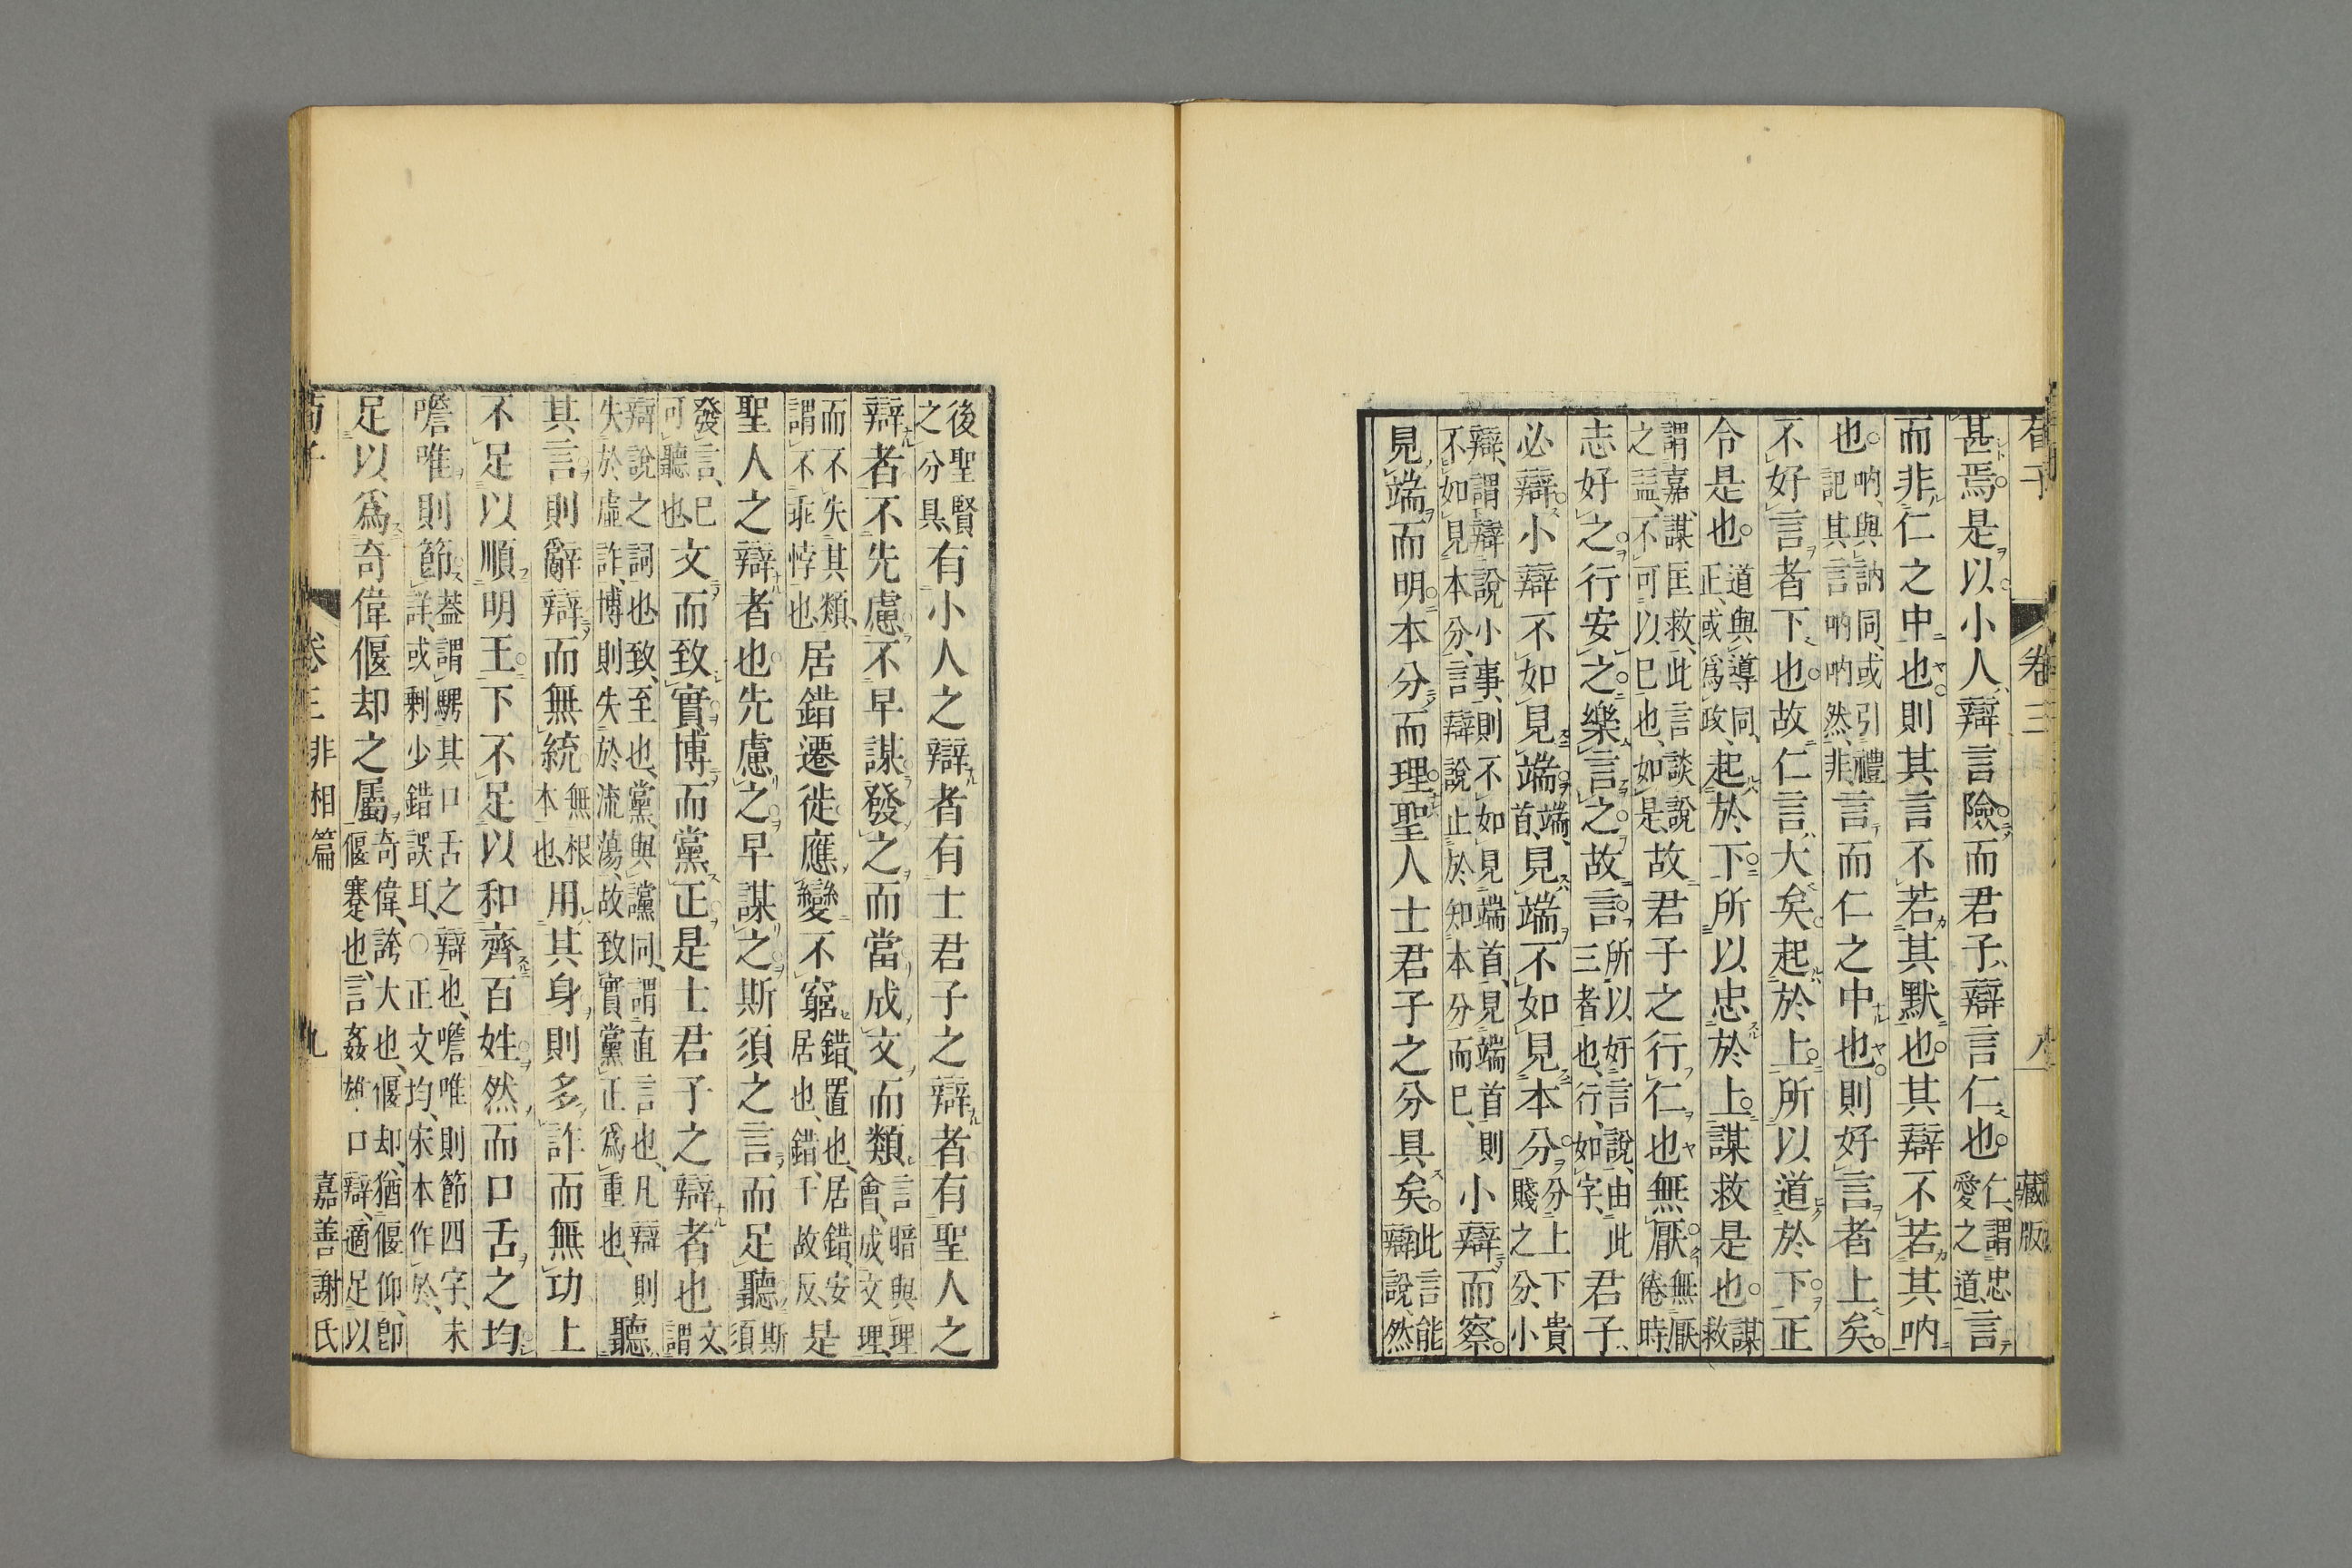 荀子 卷三 八 藏版
甚焉是以小人辯言險而君子辯言仁也仁謂忠愛之道言
而非仁之中也則其言不若其默也其辯不若其吶
也吶與訥同或引禮記其言吶吶然非言而仁之中也則好言者上矣
不好言者下也故仁言大矣起於上所以道於下正
令是也道與導同正或爲政起於下所以忠於上謀救是也謀救
謂嘉謀匡救此言談說之益不可以已也如是故君子之行仁也無厭無厭倦時
志好之行安之樂言之故言所以好言說由此三者也行如字君子
必辯小辯不如見端端首見端不如見本分分上下貴賤之分小
辯謂辯說小事則不如見端首見端首則不如見本分言辯說止於知本分而已小辯而察
見端而明本分而理聖人士君子之分具矣此言能辯說然
後聖賢之分具有小人之辯者有士君子之辯者有聖人之
辯者不先慮不早謀發之而當成文而類言暗與理會成文理
而不失其類謂不乖悖也居錯遷徙應變不窮錯置也居錯安居也錯千故反是
聖人之辯者也先慮之早謀之斯須之言而足聽斯須
發言已可聽也文而致實博而黨正是士君子之辯者也文謂
辯說之詞也致至也黨與讜同謂直言也凡辯則失於虛詐博則失於流蕩故致實黨正爲重也聽
其言則辭辯而無統無根本也用其身則多詐而無功上
不足以順明王下不足以和齊百姓然而口舌之均
噡唯則節蓋謂騁其口舌之辯也噡唯則節四字未詳或剩少錯誤耳○正文均宋本作於
足以爲奇偉偃却之屬奇偉誇大也偃却猶偃仰卽偃蹇也言姦雄口辯適足以
荀子 卷三非相篇 九 嘉善謝氏